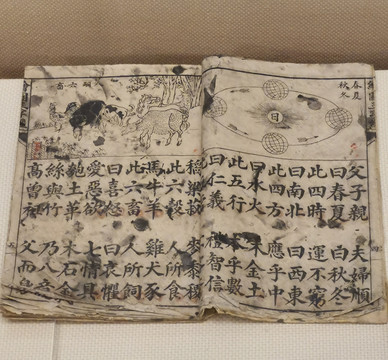 春夏
秋冬
日
父子親 夫婦順
曰春夏 曰秋冬
此四時 運不窮
曰南北 曰西東
此四方 應乎中
曰水火 木金土
此五行 本乎數
曰仁義 禮智信
六畜
稻粱菽 麥黍稷
此六穀 人所食
馬牛羊 雞犬豕
此六畜 人所飼
曰喜怒 曰哀懼
愛惡欲 七情具
匏土革 木石金
絲與竹 乃八音
高曾 父而